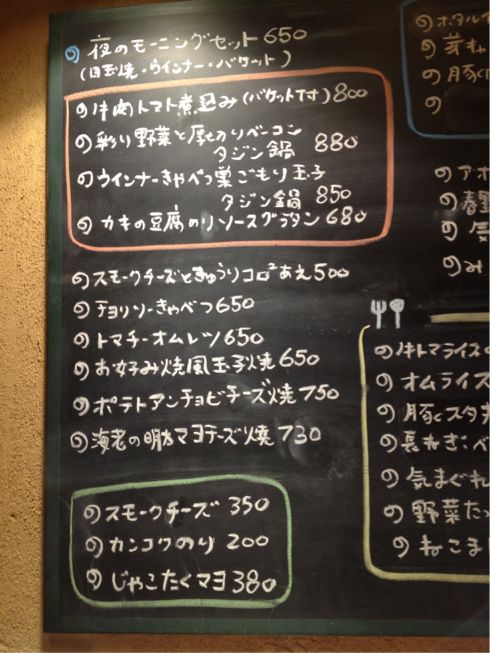 夜のモーニングセット 650
(目玉焼・ウインナー・バケット)
牛肉トマト煮込み(バケット付) 800
彩り野菜と厚切りベーコン
タジン鍋 880
ウインナーきゃべつ巣ごもり玉子
タジン鍋 850
カキの豆腐のりソースグラタン 680
スモークチーズときゅうりコロコロあえ 500
チョリソーきゃべつ 650
トマチーオムレツ 650
お好み焼風玉子焼 650
ポテトアンチョビチーズ焼 750
海老の明太マヨチーズ焼 730
スモークチーズ 350
カンコクのり 200
じゃこたくマヨ 380
ホタルイ
芽キャ
豚
アボ
春野
気
のみ
牛トマライス
オムライス
豚くスタ丼
長ねぎ・ベ
気まぐれ
野菜たっ
ねこま